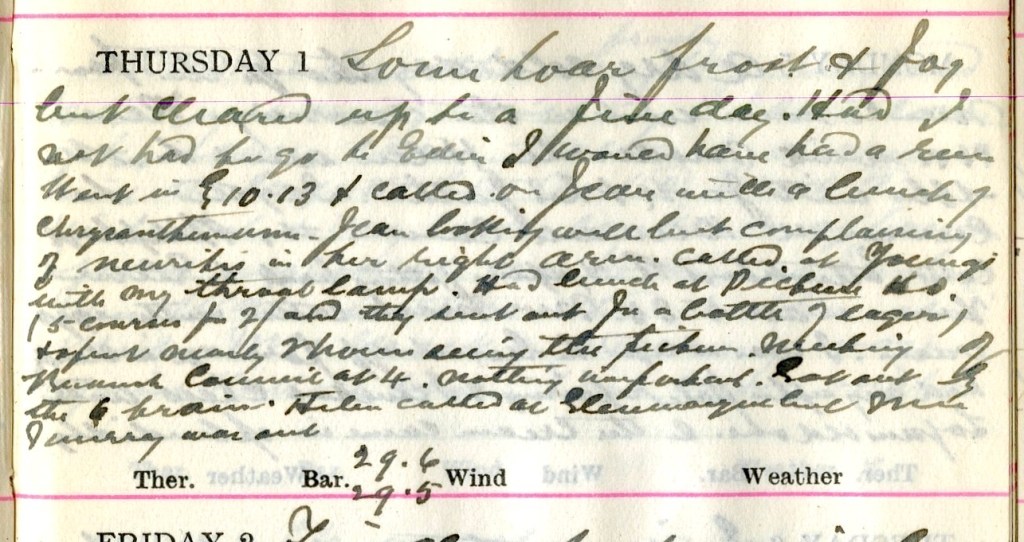 THURSDAY 1 Some hoar frost & fog
but cleared up to a fine day. Had I
not had to go to Edin I would have had a run
Went in by 10.13 & called on Jean with a bunch of
Chrysanthemums. Jean looking well but complaining
of neuritis in her right arm. Called at Youngs
with my throat lamp. Had lunch at Picture Ho
(5 courses for 2/ and they sent out for a bottle of lager)
& spent nearly 2 hours seeing the pictures. Meeting of
Council at 4. Nothing important. Got out by
the 6 train. Helen called at Mrs
Murray was out
Ther. Bar. 29.6 Wind Weather
29.5
FRIDAY 2